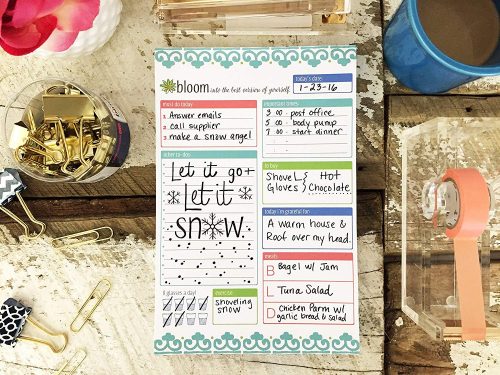 bloom into the best version of yourself.
today's date:
1-23-16
must do today:
1 Answer emails
2 call supplier
3 make a snow angel
important times
3:00 - post office
5:00 - body pump
7:00 - start dinner
other to-dos
Let it go +
Let it
snow
to buy
Shovel
Gloves
Hot
Chocolate
today i'm grateful for:
A warm house &
Roof over my head.
meals
B Bagel w/ Jam
L Tuna Salad
D Chicken Parm w/
garlic bread & salad
8 glasses a day!
exercise
shoveling
snow